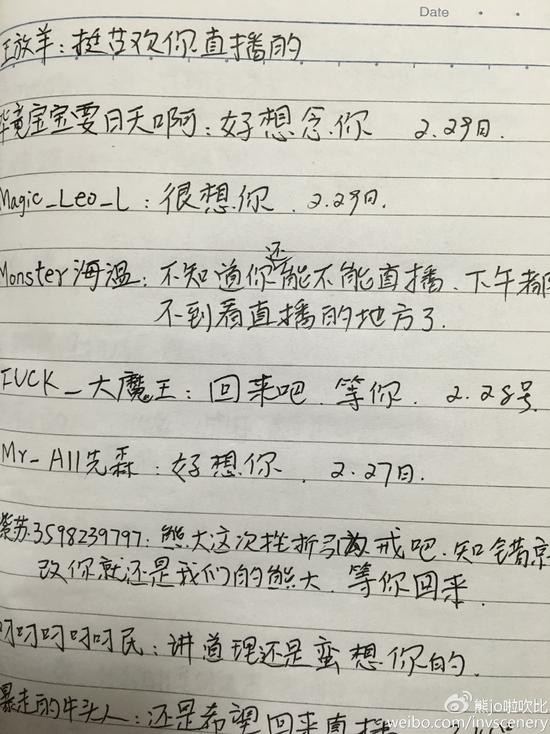 Date
王放羊：挺喜欢你直播的
毕竟宝宝要日天啊：好想念你 2.29日.
Magic_Leo_L：很想你. 2.29日.
Monster海温：不知道你还能不能直播.下午都
不到看直播的地方了.
FUCK_大魔王：回来吧.等你. 2.28号
Mr_All先森：好想你. 2.27日.
紫苏.3598239797：熊大这次挫折引以戒吧.知错就
改你就还是我们的熊大.等你回来.
叼叼叼叼叼民：讲道理还是蛮想你的.
暴走的牛头人：还是希望回来直播
熊jo啦吹比
weibo.com/invscenery